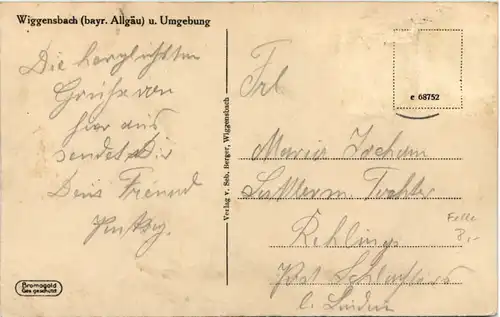 Wiggensbach (bayr. Allgäu) u. Umgebung
Die herzlichsten
Grüße von
hier aus
sendet Dir
Dein Freund
Verlag v. Seb. Berger, Wiggensbach
Frl
e 68752
Maria Jocham
Sattlerm. Tochter
Post
b. Lindau
8,-
Bromogold
Ges. geschützt